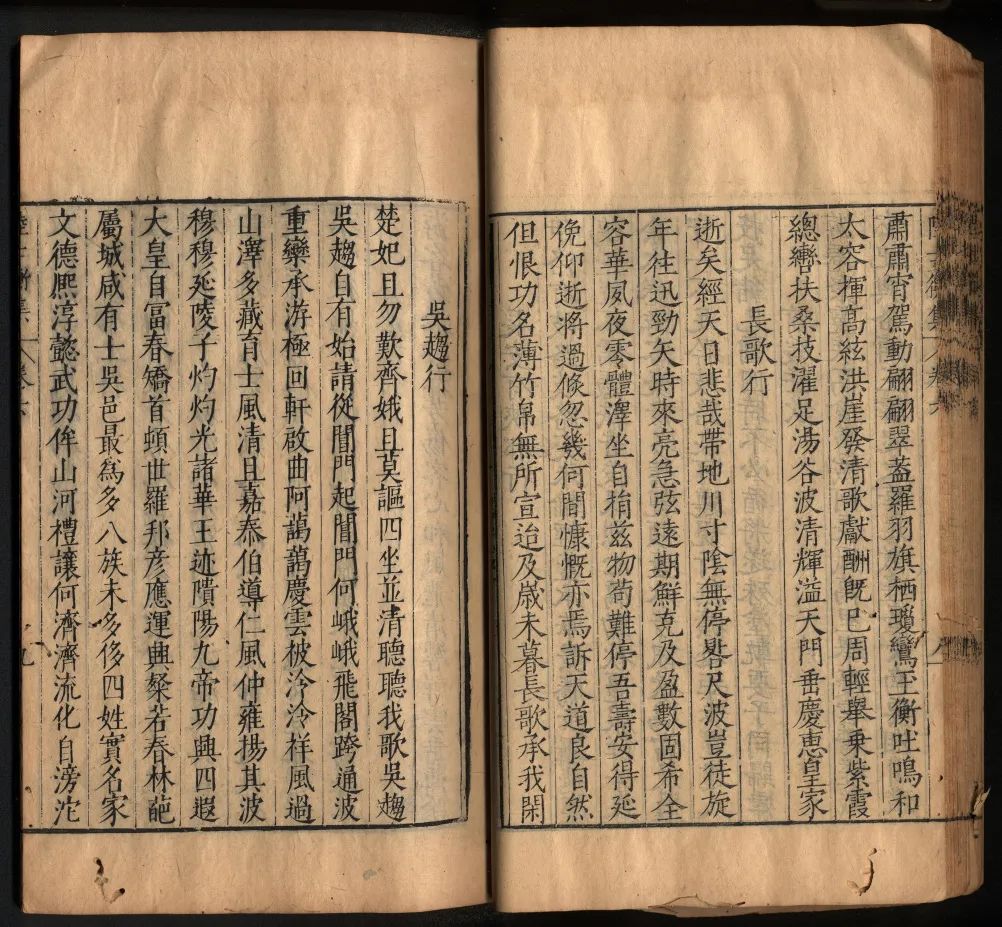 肅肅宵駕動翩翩翠葢羅羽旗栖瓊鸞玉衡吐鳴和
太容揮高絃洪崖發清歌獻酬旣已周輕舉乗紫霞
總轡扶桑技濯足湯谷波清輝溢天門垂慶恵皇家
長歌行
逝矣經天日悲哉帶地川寸陰無停晷尺波豈徒旋
年往迅勁矢時來亮急弦遠期鮮克及盈數固希全
容華夙夜零體澤坐自捐兹物苟難停吾壽安得延
俛仰逝將過倐忽幾何間慷慨亦焉訴天道良自然
但恨功名薄竹帛無所宣迨及歲未暮長歌承我閑
吳趨行
楚妃且勿歎齊娥且莫謳四坐並清聽聽我歌吳趨
吳趨自有始請從閶門起閶門何峨峨飛閣跨通波
重欒承游極回軒啟曲阿藹藹慶雲被泠泠祥風過
山澤多藏育土風清且嘉泰伯導仁風仲雍揚其波
穆穆延陵子灼灼光諸華王迹隤陽九帝功興四遐
大皇自富春矯首頓世羅邦彥應運興粲若春林葩
屬城咸有士吳邑最為多八族未多侈四姓實名家
文德熈淳懿武功侔山河禮讓何濟濟流化自滂沱